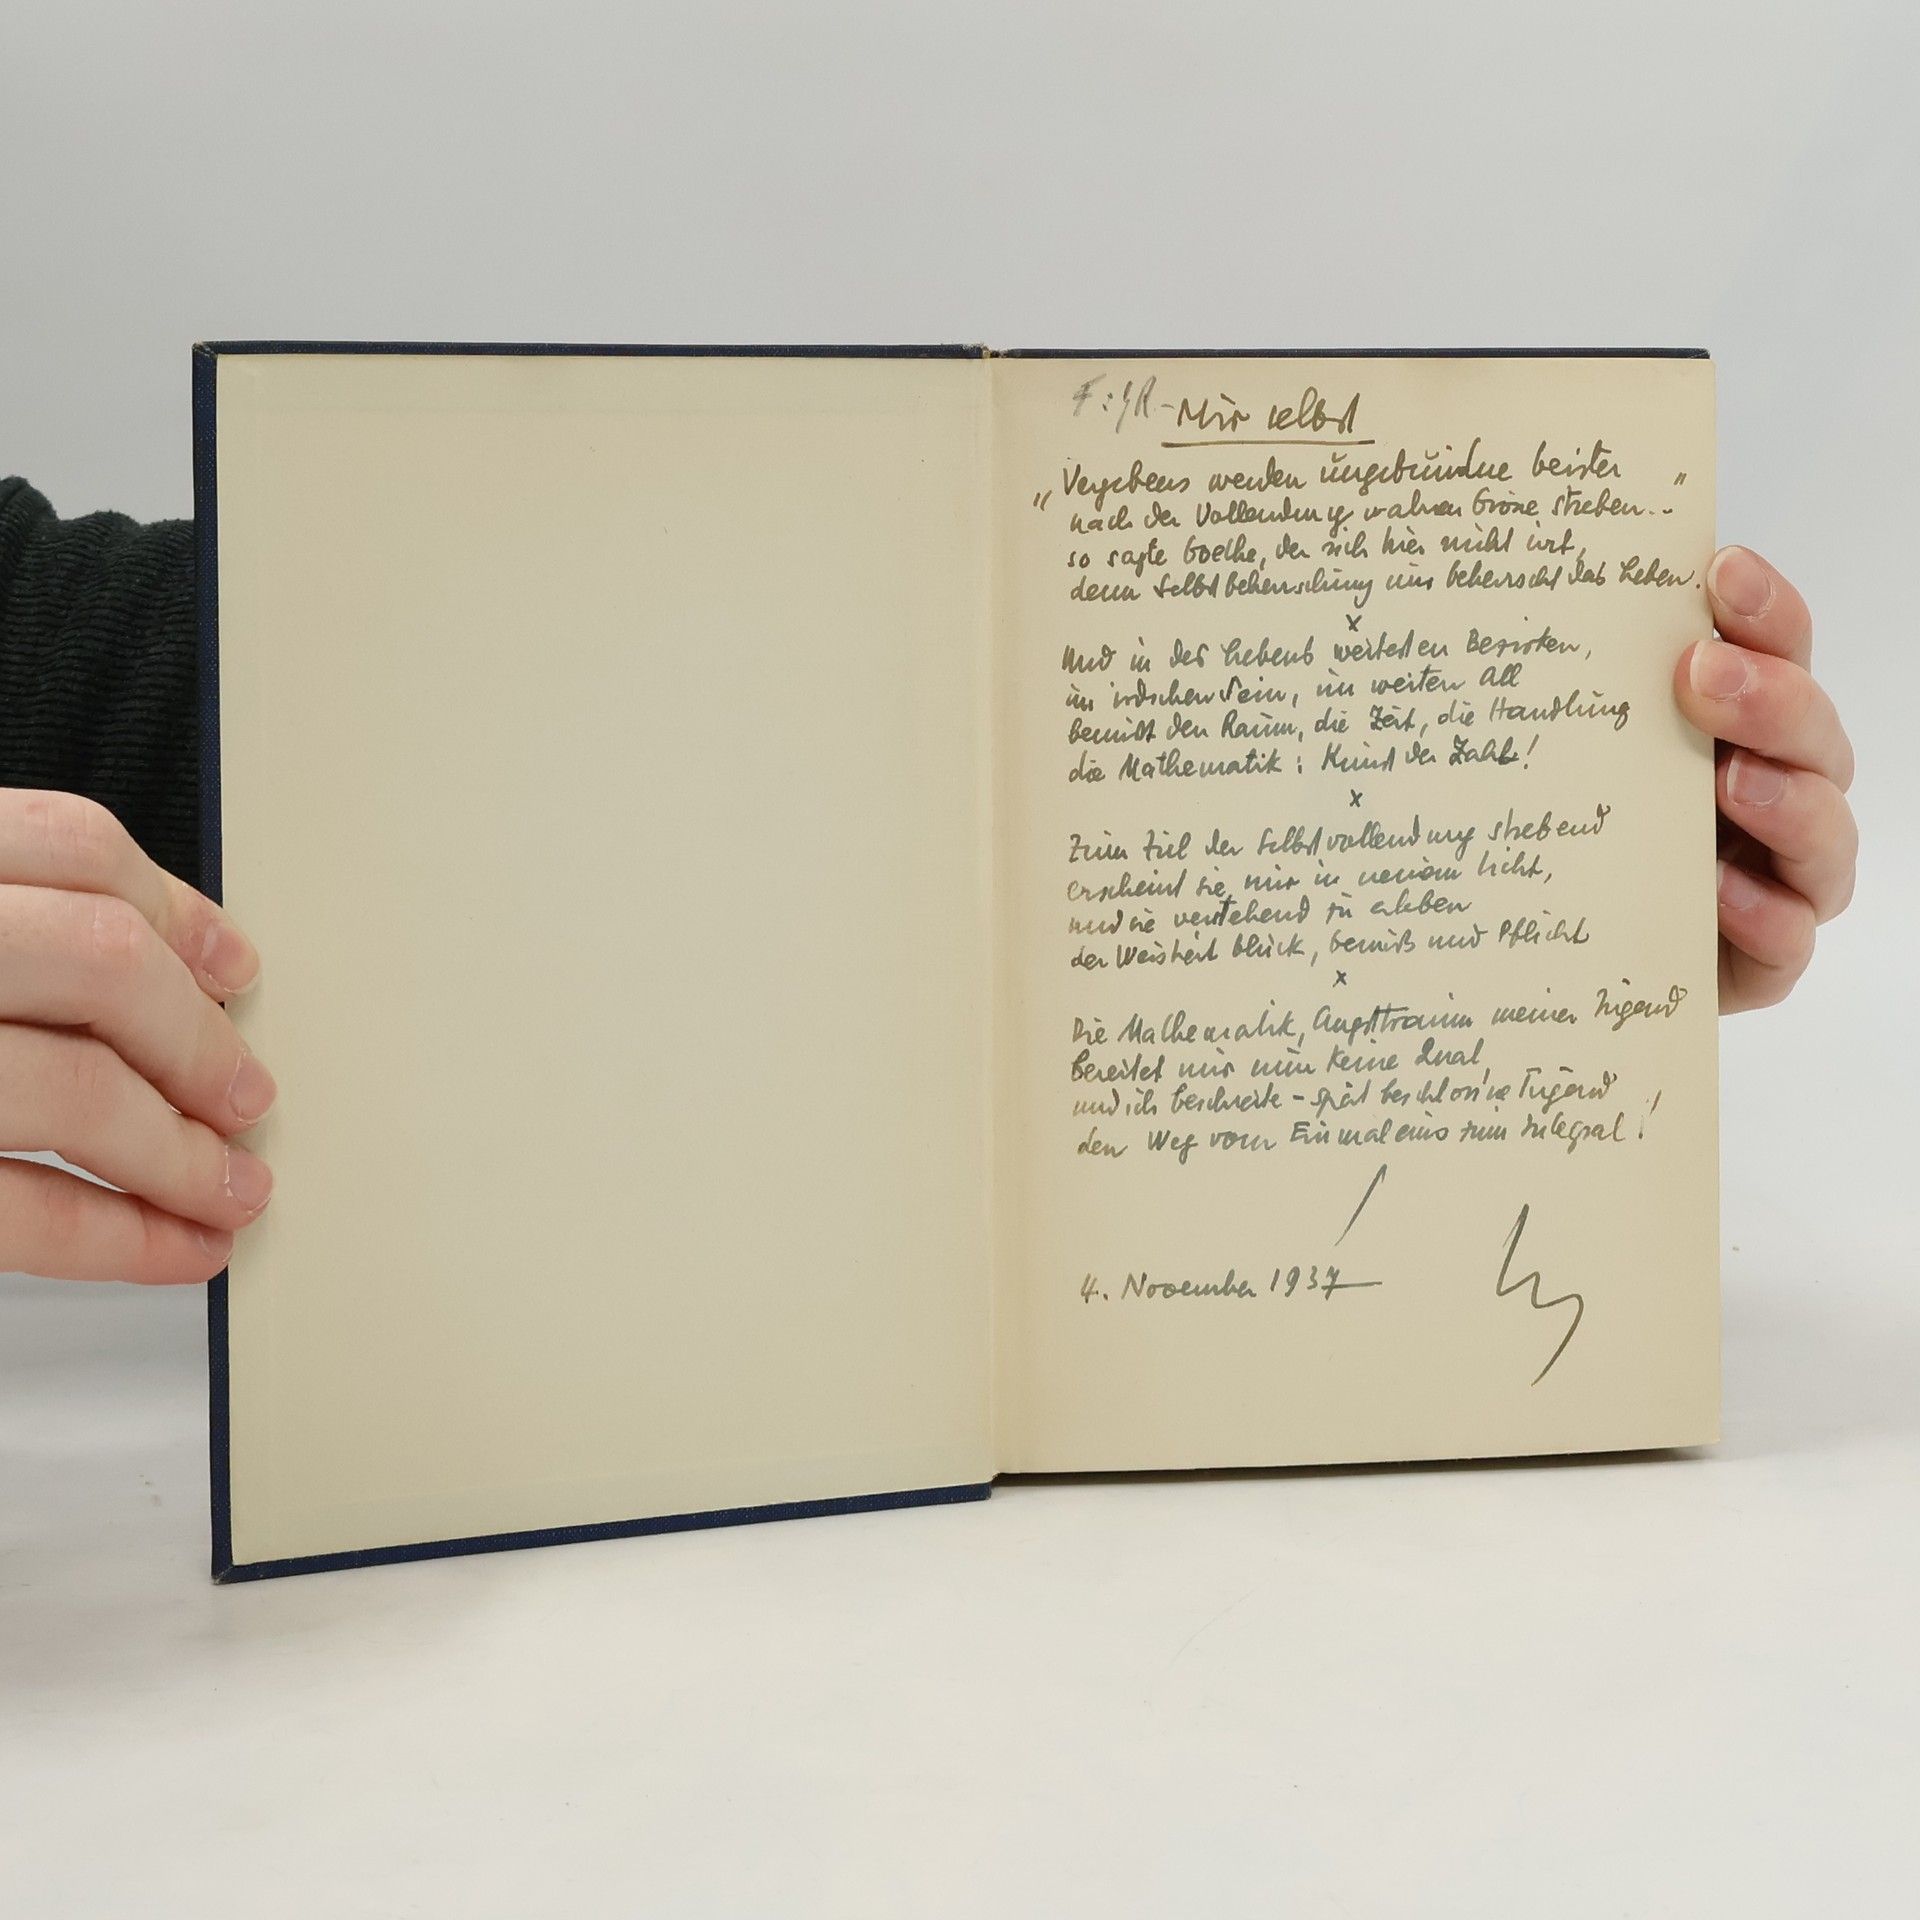 Mir selbst
„Vergebens werden ungebundne Geister
nach der Vollendung wahrer Grösse streben..“
so sagte Goethe, der sich hier nicht irrt,
denn Selbstbeherrschung nur beherrscht das Leben.
x
Und in des Lebens weitesten Bezirken,
im irdschen Sein, im weiten All
bemisst den Raum, die Zeit, die Handlung
die Mathematik: Kunst der Zahl!
x
Zum Ziel der Selbstvollendung strebend
erscheint sie mir in neuem Licht,
und sie verstehend zu erleben
der Weisheit Glück, Genuß und Pflicht
x
Die Mathematik, Angsttraum meiner Jugend
bereitet mir nun keine Qual,
und ich beschreite - spät beschloss'ne Tugend
den Weg vom Einmaleins zum Integral!
4. November 1937